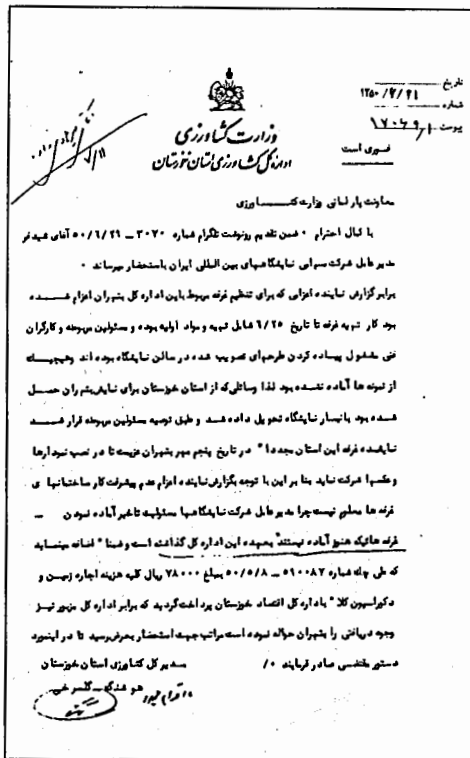 تاریخ ۱۳۵۰/۷/۲۱
شماره
پیوست ۱۷۰۴۹/۱
فوری است
وزارت کشاورزی
اداره کل کشاورزی استان خوزستان
معاونت پارلمانی وزارت کشاورزی
با کمال احترام ۰ ضمن تقدیم رونوشت تلگرام شماره ۳۰۷۰ – ۵۰/۶/۲۹ آقای
مدیرعامل شرکت سهامی نمایشگاههای بین المللی ایران باستحضار میرساند ۰
برابر گزارش نماینده اعزامی که برای تنظیم غرفه مربوط باین اداره کل بتهران اعزام شده
بود کار تهیه غرفه تا تاریخ ۶/۲۵ شامل تهیه و مواد اولیه بوده و مسئولین مربوطه و کارگران
فنی مشغول پیاده کردن طرحهای تصویب شده در سالن نمایشگاه بوده اند وهیچیک
از نمونه ها آماده نشده بود لذا وسائلی که از استان خوزستان برای نمایش بتهران حمل
شده بود بانبار نمایشگاه تحویل داده شد و طبق توصیه مسئولین مربوطه قرار شد
نماینده غرفه این استان مجددا" در تاریخ پنجم مهر بتهران عزیمت تا در نصب نمودارها
وعکسها شرکت نماید بنا بر این با توجه بگزارش نماینده اعزام عدم پیشرفت کار ساختمانهای
غرفه ها معلوم نیست چرا مدیرعامل شرکت نمایشگاهها مسئولیت تاخیر آماده نبودن –
غرفه هائیکه هنوز آماده نیستند بعهده این اداره کل گذاشته است و ضمنا" اضافه مینماید
که طی چک شماره ۵۹۰۰۸۷ – ۵۰/۵/۸ مبلغ ۷۸۰۰۰ ریال کلیه هزینه اجاره زمین و
دکوراسیون کلا" باداره کل اقتصاد خوزستان پرداخت گردید که برابر اداره کل مزبور نیز
وجوه دریافتی را بتهران حواله نموده است مراتب جهت استحضار بعرض رسید تا در اینمورد
دستور مقتضی صادر فرمایند /۰
مدیر کل کشاورزی استان خوزستان
هوشنگ گلسرخی
اقدام شود